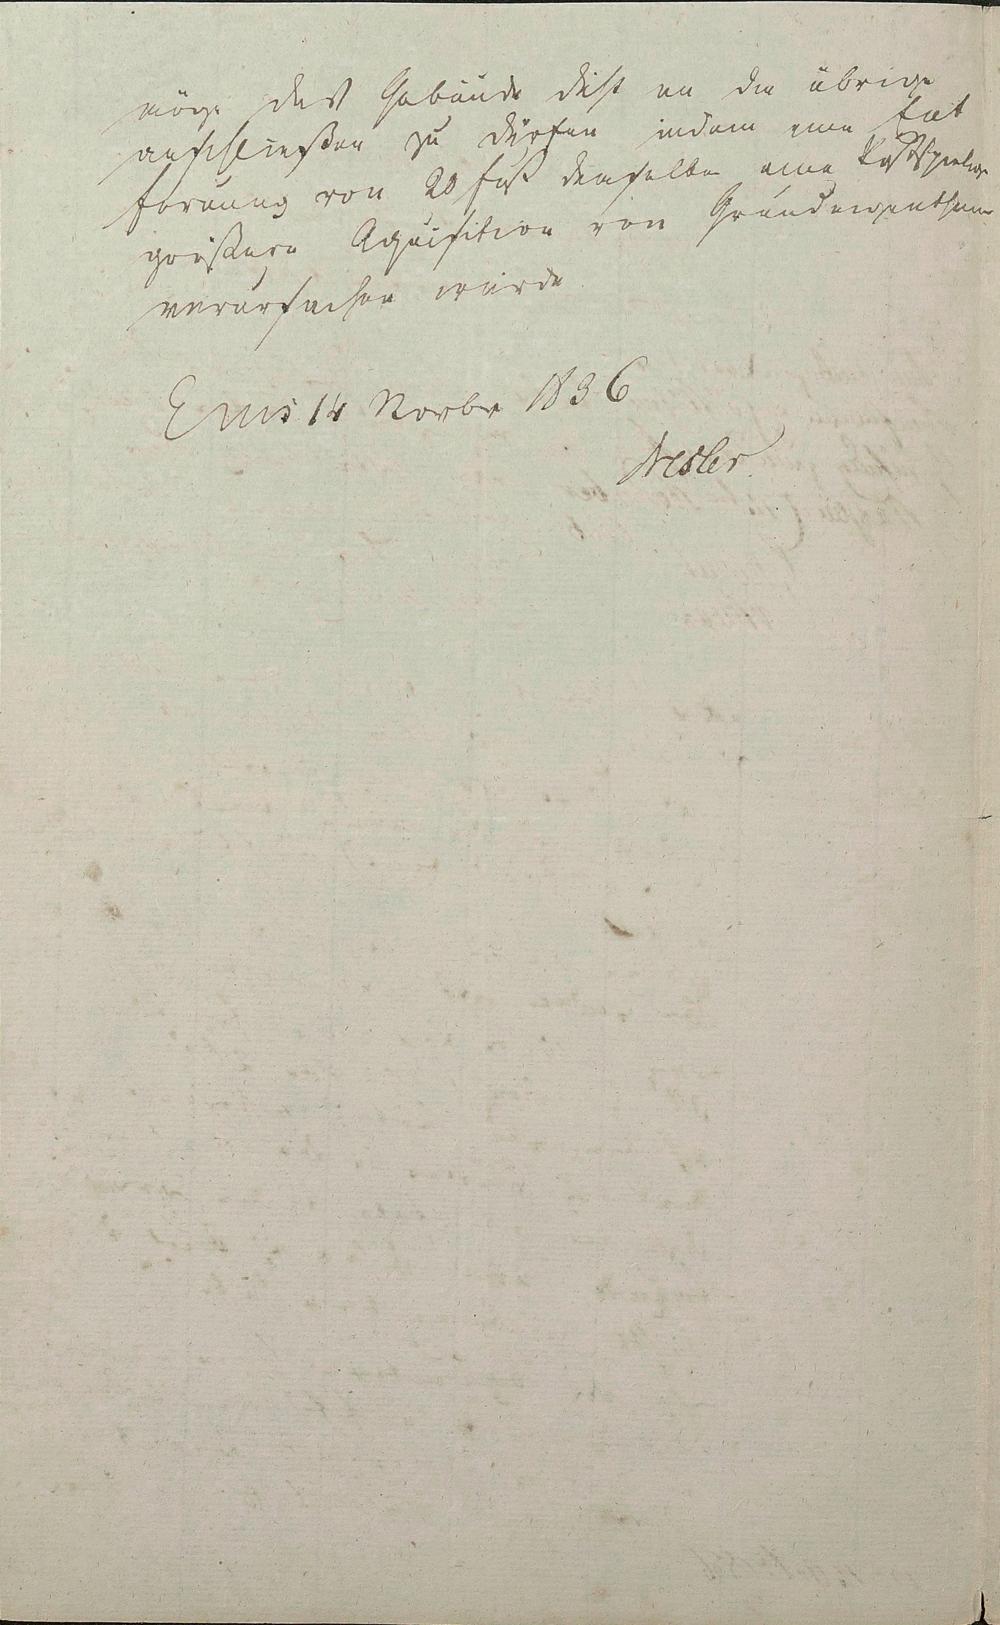 möge das Gebäude dicht an die übrige
anschließen zu dürfen indem eine Ent
fernung von 20 Fuß demselben eine kostspielige
größere Aquisition von Grundeigenthum
verursachen würde.
Ems 14 Novbr 1836